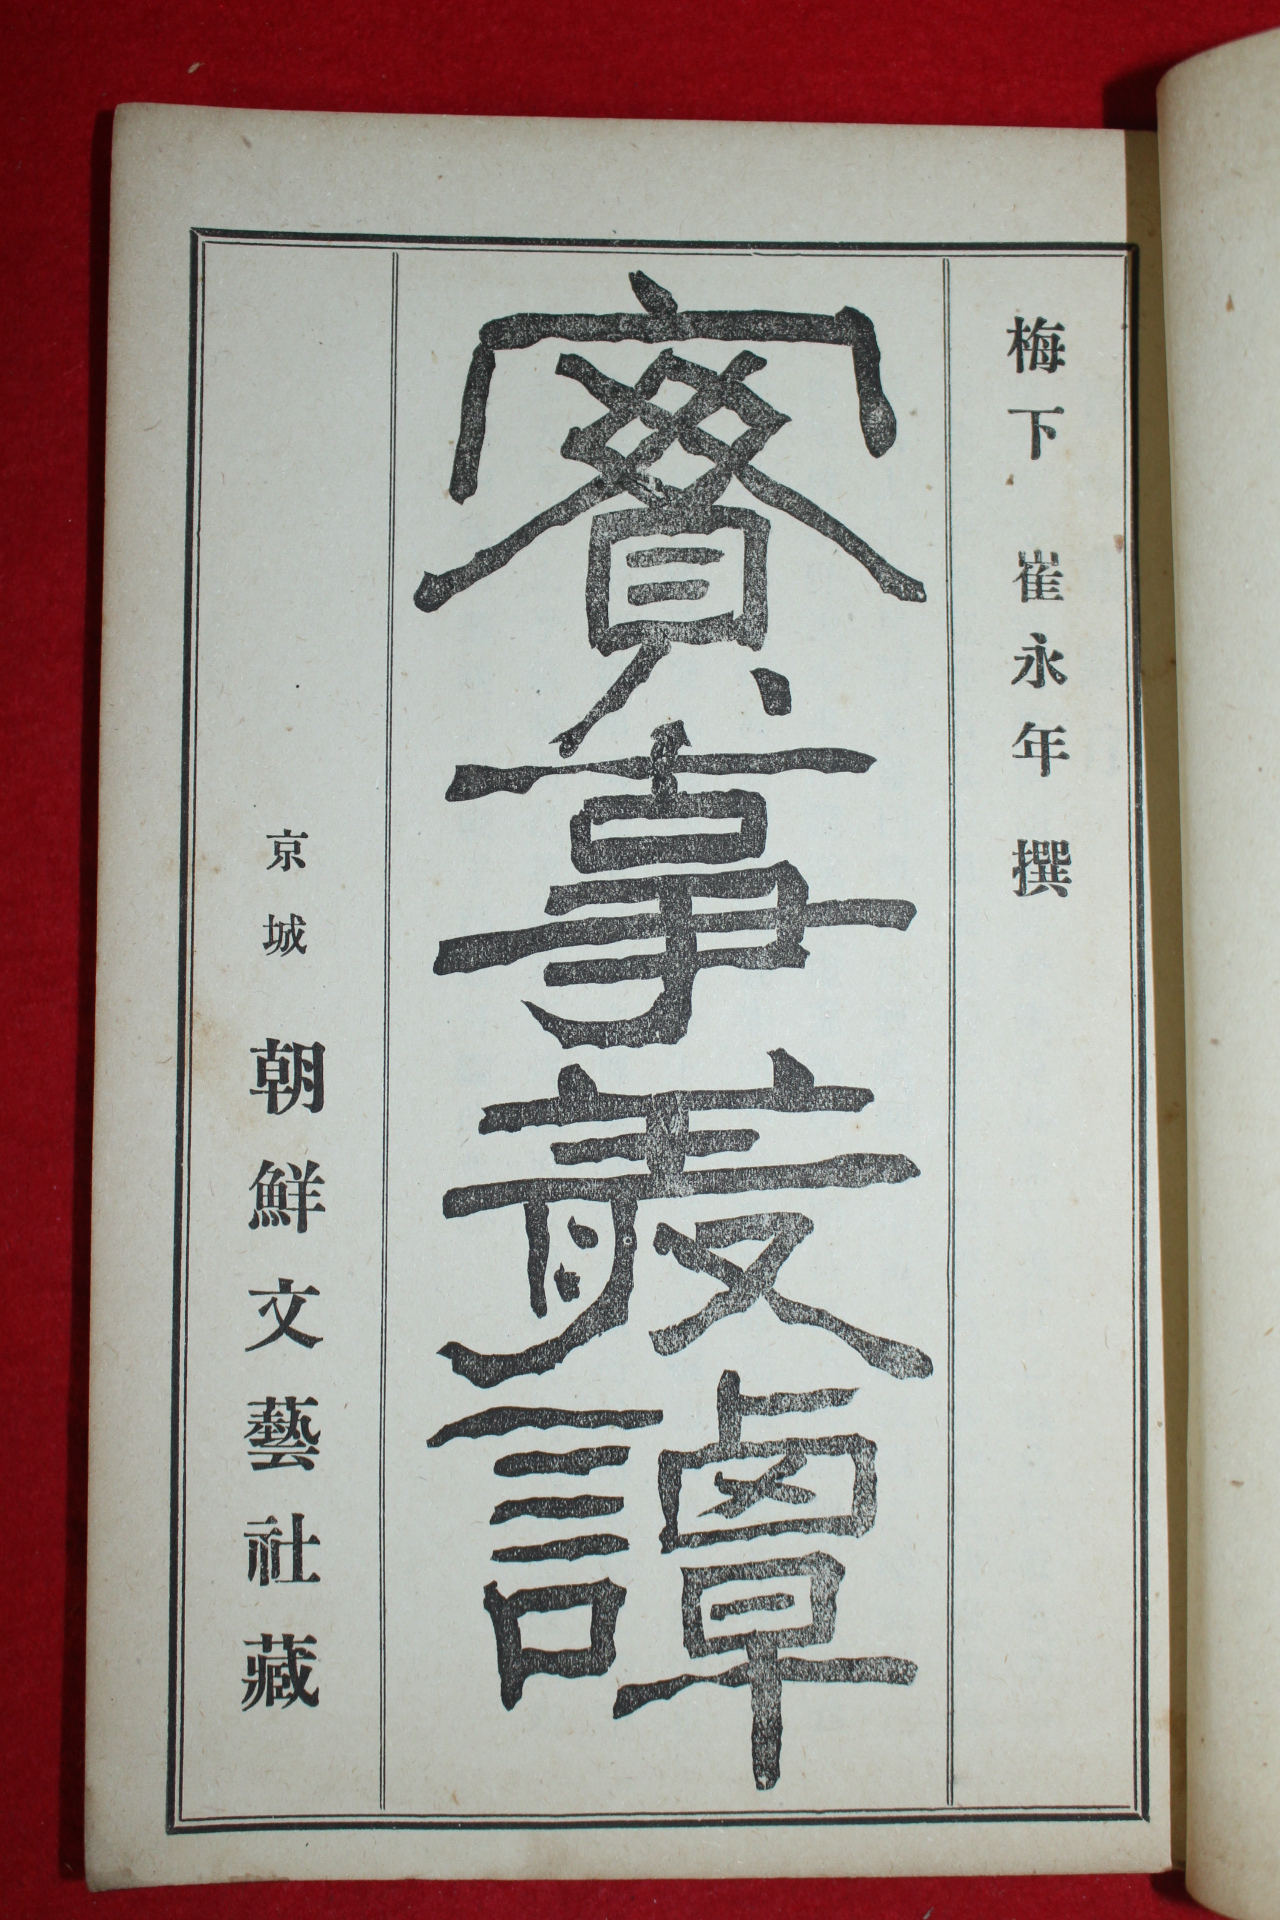 梅下 崔永年 撰
實事叢譚
京城 朝鮮文藝社藏